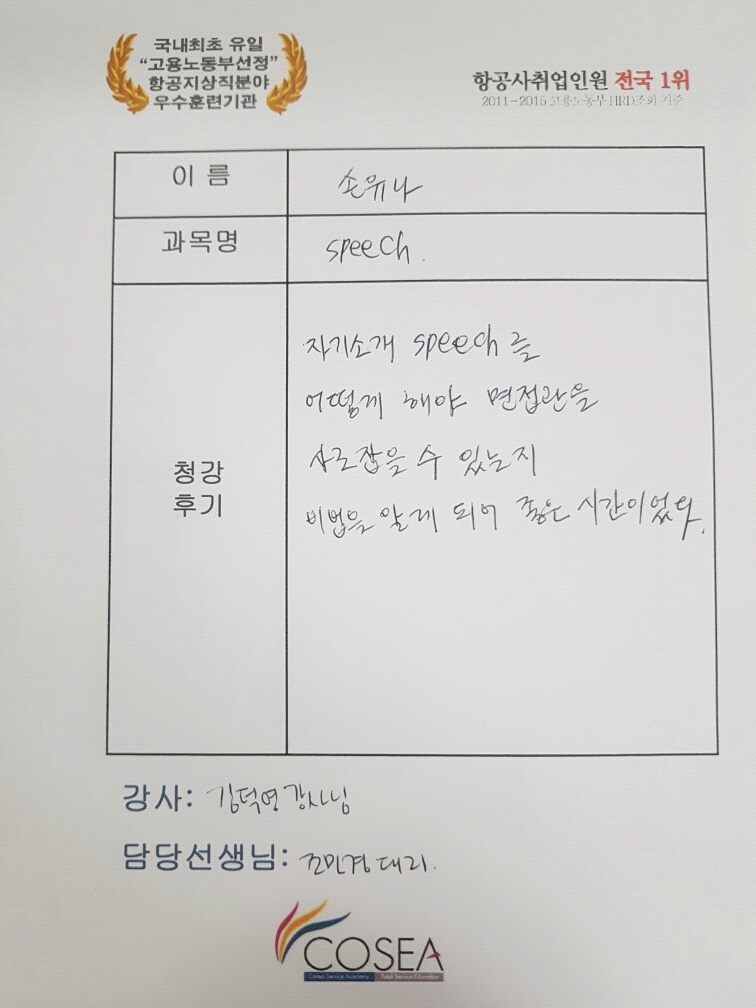 국내최초 유일
“고용노동부선정”
항공지상직분야
우수훈련기관
항공사취업인원 전국 1위
2011-2015 고용노동부 HRD조회 기준
이 름
손유나
과목명
speech.
청강
후기
자기소개 speech를
어떻게 해야 면접관을
사로잡을 수 있는지
비법을 알게 되어 좋은 시간이었다.
강사: 김덕영강사님
담당선생님: 조민경 대리.
COSEA
Cosea Service Academy Total Service Education